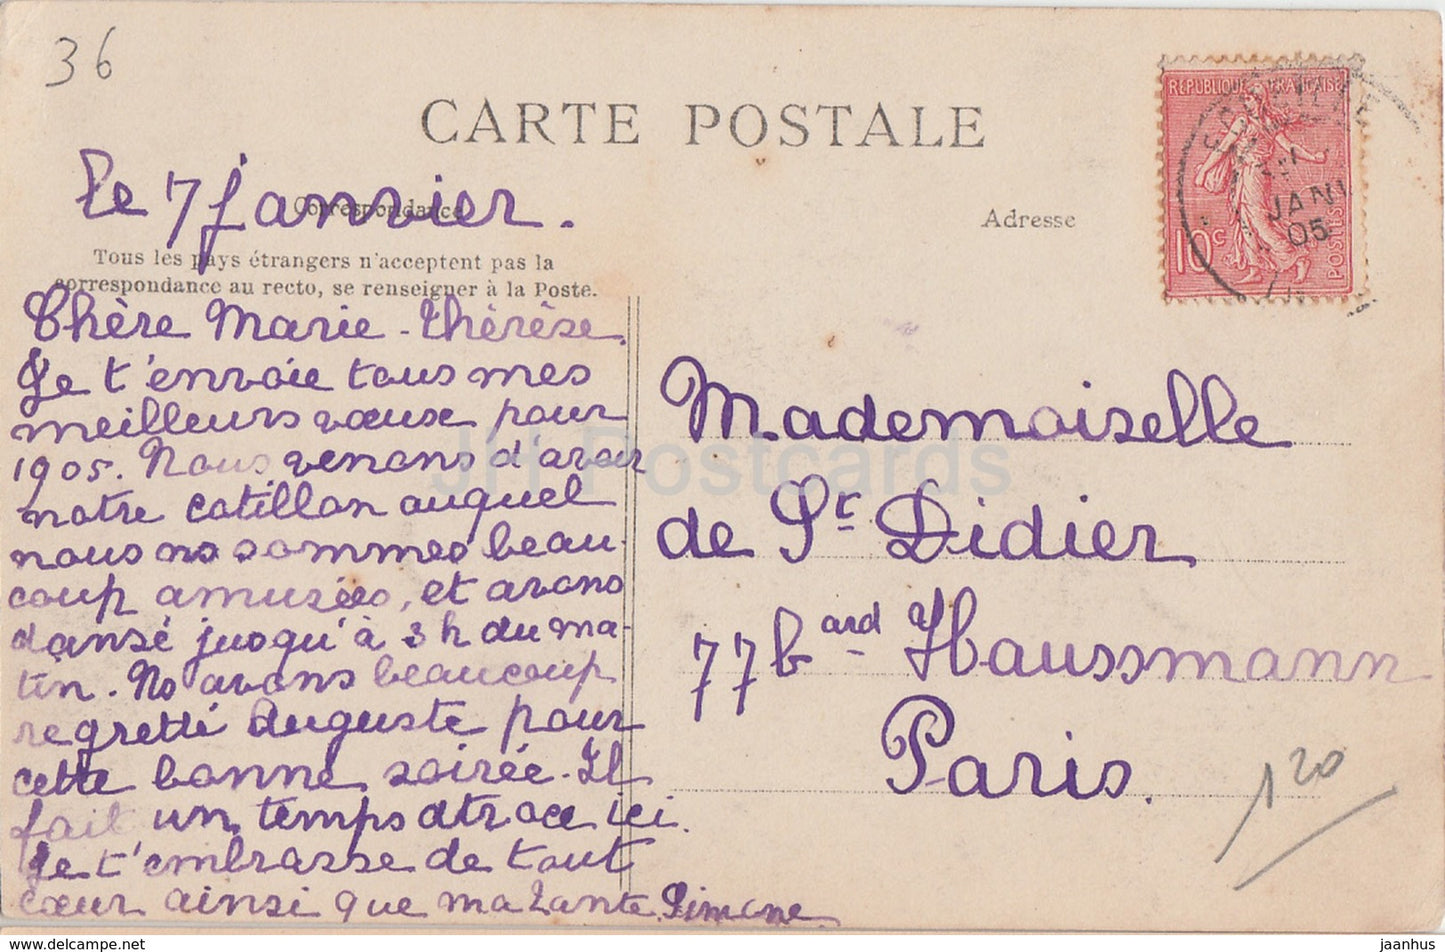 36
CARTE POSTALE
le 7 janvier.
Correspondance
Adresse
Tous les pays étrangers n'acceptent pas la
correspondance au recto, se renseigner à la Poste.
Chère Marie-Thérèse.
Je t'envoie tous mes
meilleurs vœux pour
1905. Nous venons d'avoir
notre cotillon auquel
nous ns sommes beau-
coup amusées, et avons
dansé jusqu'à 3 h du ma-
tin. Ns avons beaucoup
regretté Auguste pour
cette bonne soirée. Il
fait un temps atroce ici.
Je t'embrasse de tout
cœur ainsi que ma Tante. Simone
Mademoiselle
de St Didier
77 bard Haussmann
Paris.
120
RÉPUBLIQUE FRANÇAISE
10c
POSTES
JANV
05
JH Postcards
www.delcampe.net
jaanhus